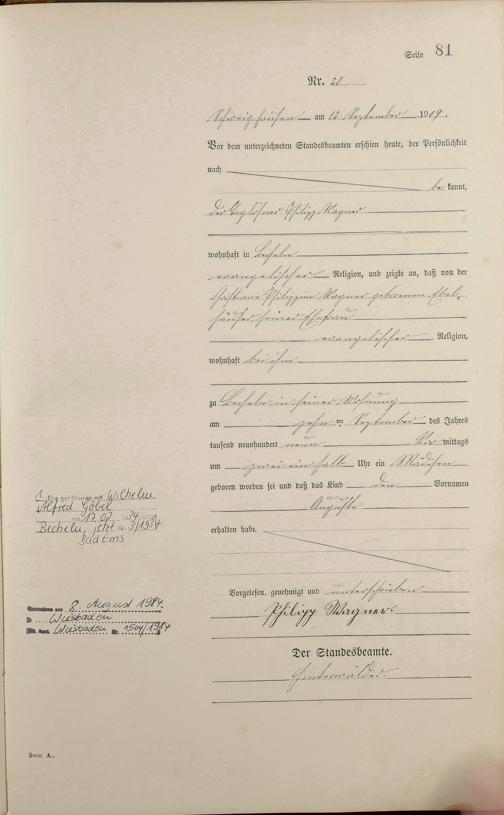 Seite 81
Nr. 20
Schweighausen am 12. September 1909.
Vor dem unterzeichneten Standesbeamten erschien heute, der Persönlichkeit
nach
be kannt,
der Taglöhner Philipp Wagner
wohnhaft in Becheln
evangelischer Religion, und zeigte an, daß von der
Wagner geborenen Ebel-
häuser seiner Ehefrau
evangelischer Religion,
wohnhaft bei ihm
zu Becheln in seiner Wohnung
am zehn ten September des Jahres
tausend neunhundert neun Vor mittags
um zwei ein halb Uhr ein Mädchen
geboren worden sei und daß das Kind den Vornamen
Auguste
erhalten habe.
Vorgelesen, genehmigt und unterschrieben
Philipp Wagner
Der Standesbeamte.
Hinterwälder
1. Wilhelm
Alfred Göbel
am 17.02.1934
Becheln, jetzt Nr. 3/1934
Bad Ems
8. August 1984
Wiesbaden
Wiesbaden Nr. 1504/1984
Form. A.